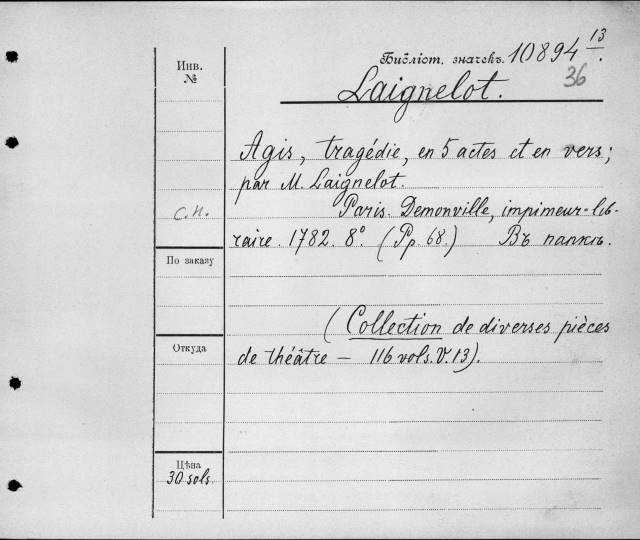 Инв.
№
Библіот. значекъ. 10894 13
36
Laignelot.
Agis, tragédie, en 5 actes et en vers;
par M. Laignelot.
с.п. Paris. Demonville, impimeur-lib-
raire. 1782. 8°. (Pp. 68.) Въ папкѣ.
По заказу
(Collection de diverses pièces
Откуда
de théâtre — 116 vols. V. 13).
Цѣна
30 sols.